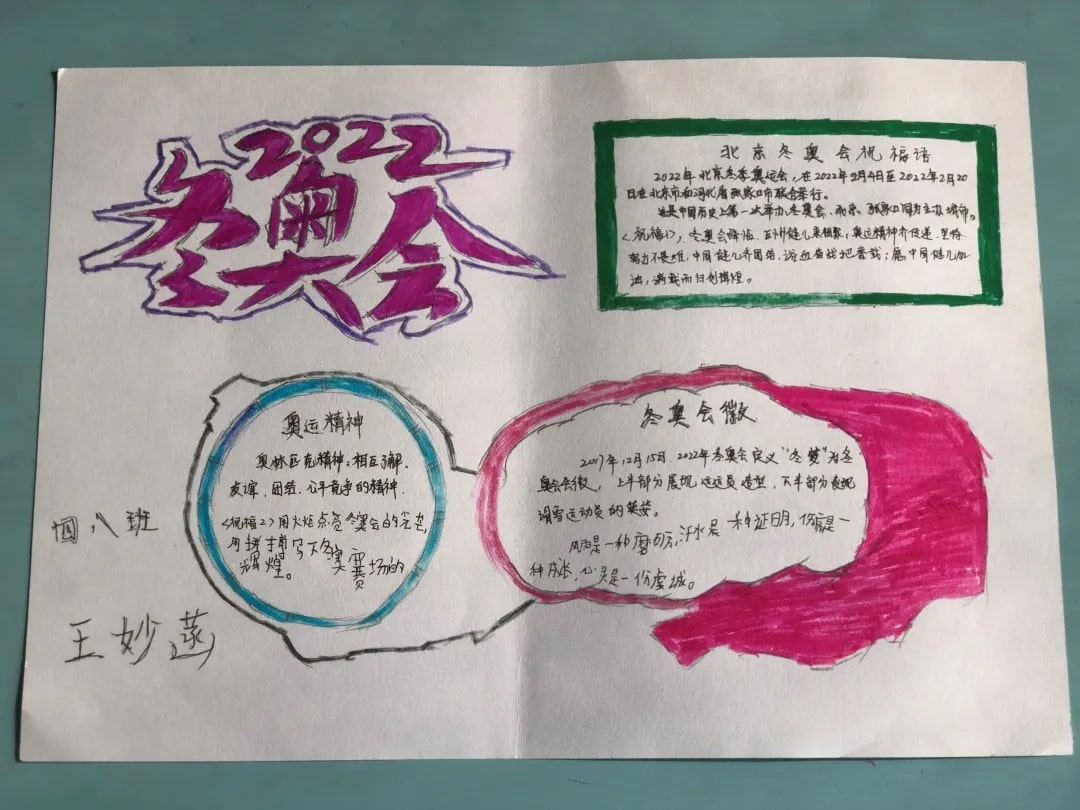 2022
冬奥会
大
北京冬奥会祝福语
2022年北京冬季奥运会,在2022年2月4日至2022年2月20
日在北京市和河北省张家口市联合举行。
这是中国历史上第一次举办冬奥会、北京、张家口同为主办城市。
<祝福1>,冬奥会降临,五洲健儿来相聚;奥运精神齐传递,坚持
努力不畏难,中国健儿齐团结,浴血奋战把誉载;愿中国健儿加
油,满载而归创辉煌。
奥运精神
奥林匹克精神:相互了解、
友谊、团结、公平竞争的精神.
<祝福2>用火炬点亮冬奥会的光芒,
用拼搏写下冬奥赛场的
辉煌。
冬奥会徽
2017年12月15日 2022年冬奥会定义“冬梦”为冬
奥会会徽, 上半部分展现 运员 造型, 下半部分表现
滑雪运动员的英姿。
风雨是一种磨历,汗水是一种证明,伤痕是一
种成长,心灵是一份虔诚。
八班
王妙